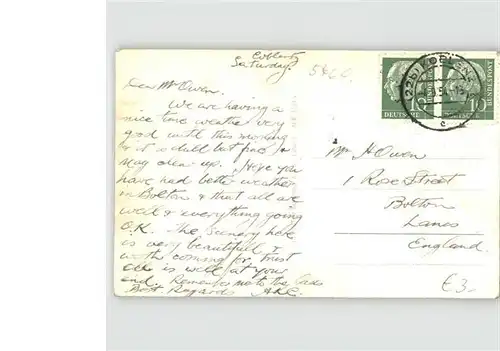 Coblenz
Saturday.
Dear Mr Owen.
We are having a
nice time weather very
good until this morning
& it is dull but fine &
may clear up. Hope you
have had better weather
in Bolton & that all are
well & everything going
O.K. The Scenery here
is very beautiful &
worth coming for. Trust
all is well at your
end. Remember me to the lads
Best Regards
Mr H Owen
1 Rose Street
Bolton
Lancs
England.
DEUTSCHE
BUNDESPOST
BUNDESPOST
KOBLENZ
c
€3-